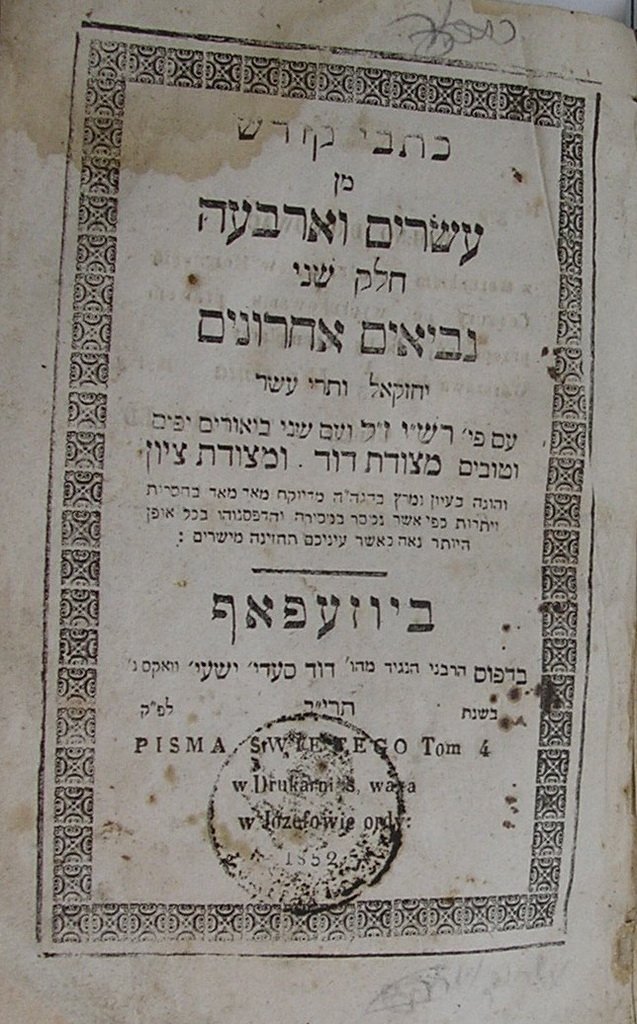 כתבי קודש
מן
עשרים וארבעה
חלק שני
נביאים אחרונים
יחזקאל ותרי עשר
עם פי׳ רש״י ז״ל ועם שני ביאורים יפים
וטובים מצודת דוד . ומצודת ציון
והוגה בעיון נמרץ בהגה״ה מדויקת מאד מאד בחסרות
ויתרות כפי אשר נמסר במסורה והדפסנוהו בכל אופן
היותר נאה כאשר עיניכם תחזינה מישרים :
ביוזעפאף
בדפוס הרבני הנגיד מהו׳ דוד סעדי׳ ישעי׳ וואקס נ׳
בשנת תרי״ב לפ״ק
PISMA SWIETEGO Tom 4
w Drukarni S. waxa
w Jozefowie ordy:
1852